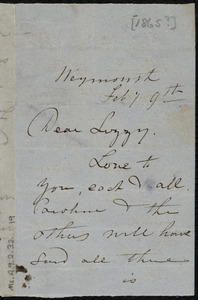 [1865?]
Weymouth
Feb 7 9th
Dear Lizzy.
Love to
you, each & all.
Caroline & the
others will have
said all there
is